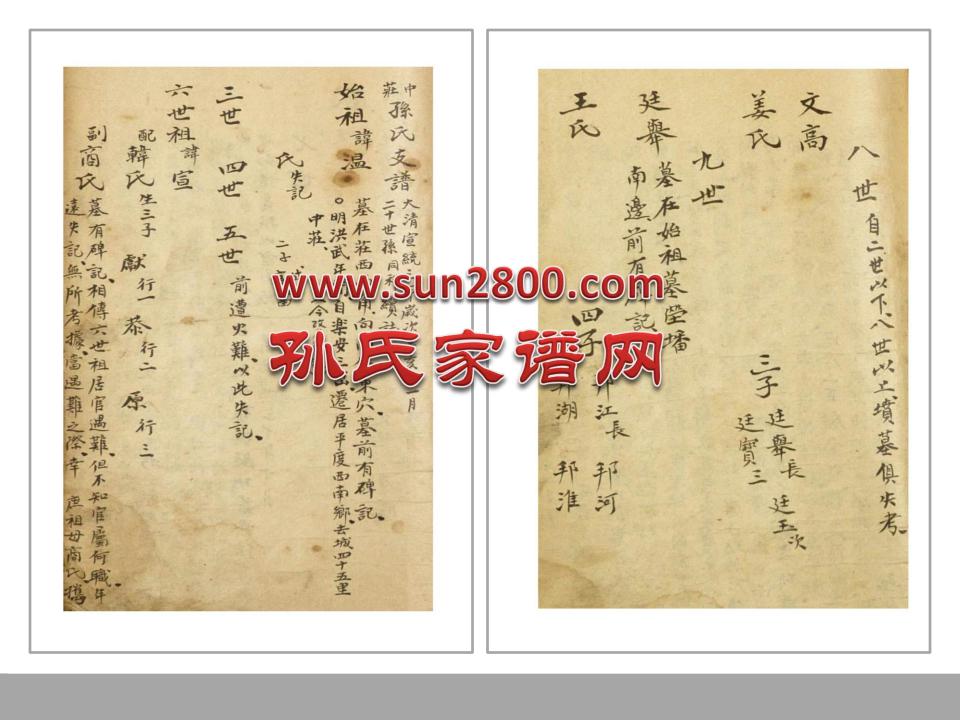 中莊孫氏支譜
大清宣統三
歲次
月
二十世孫同
始祖諱溫
墓在莊西
穴墓前有碑記
明洪武年
遷居平度西南鄉去城四十五里
中莊
氏失記
二子
三世 四世 五世 前遭火難以此失記
六世祖諱宣
配韓氏生三子 獻行一 恭行二 原行三
副商氏
墓有碑記相傳六世祖居官遇難但不知官屬何職年
遠失記無所考據當遇難之際幸 庶祖母商氏攜
八世 自二世以下八世以上墳墓俱失考
文高
姜氏 三子 廷舉長 廷玉次
廷寶三
九世
廷舉 墓在始祖墓塋壖
南邊前有碑記
王氏 四子 邦江長 邦河
邦湖 邦淮
www.sun2800.com
孙氏家谱网